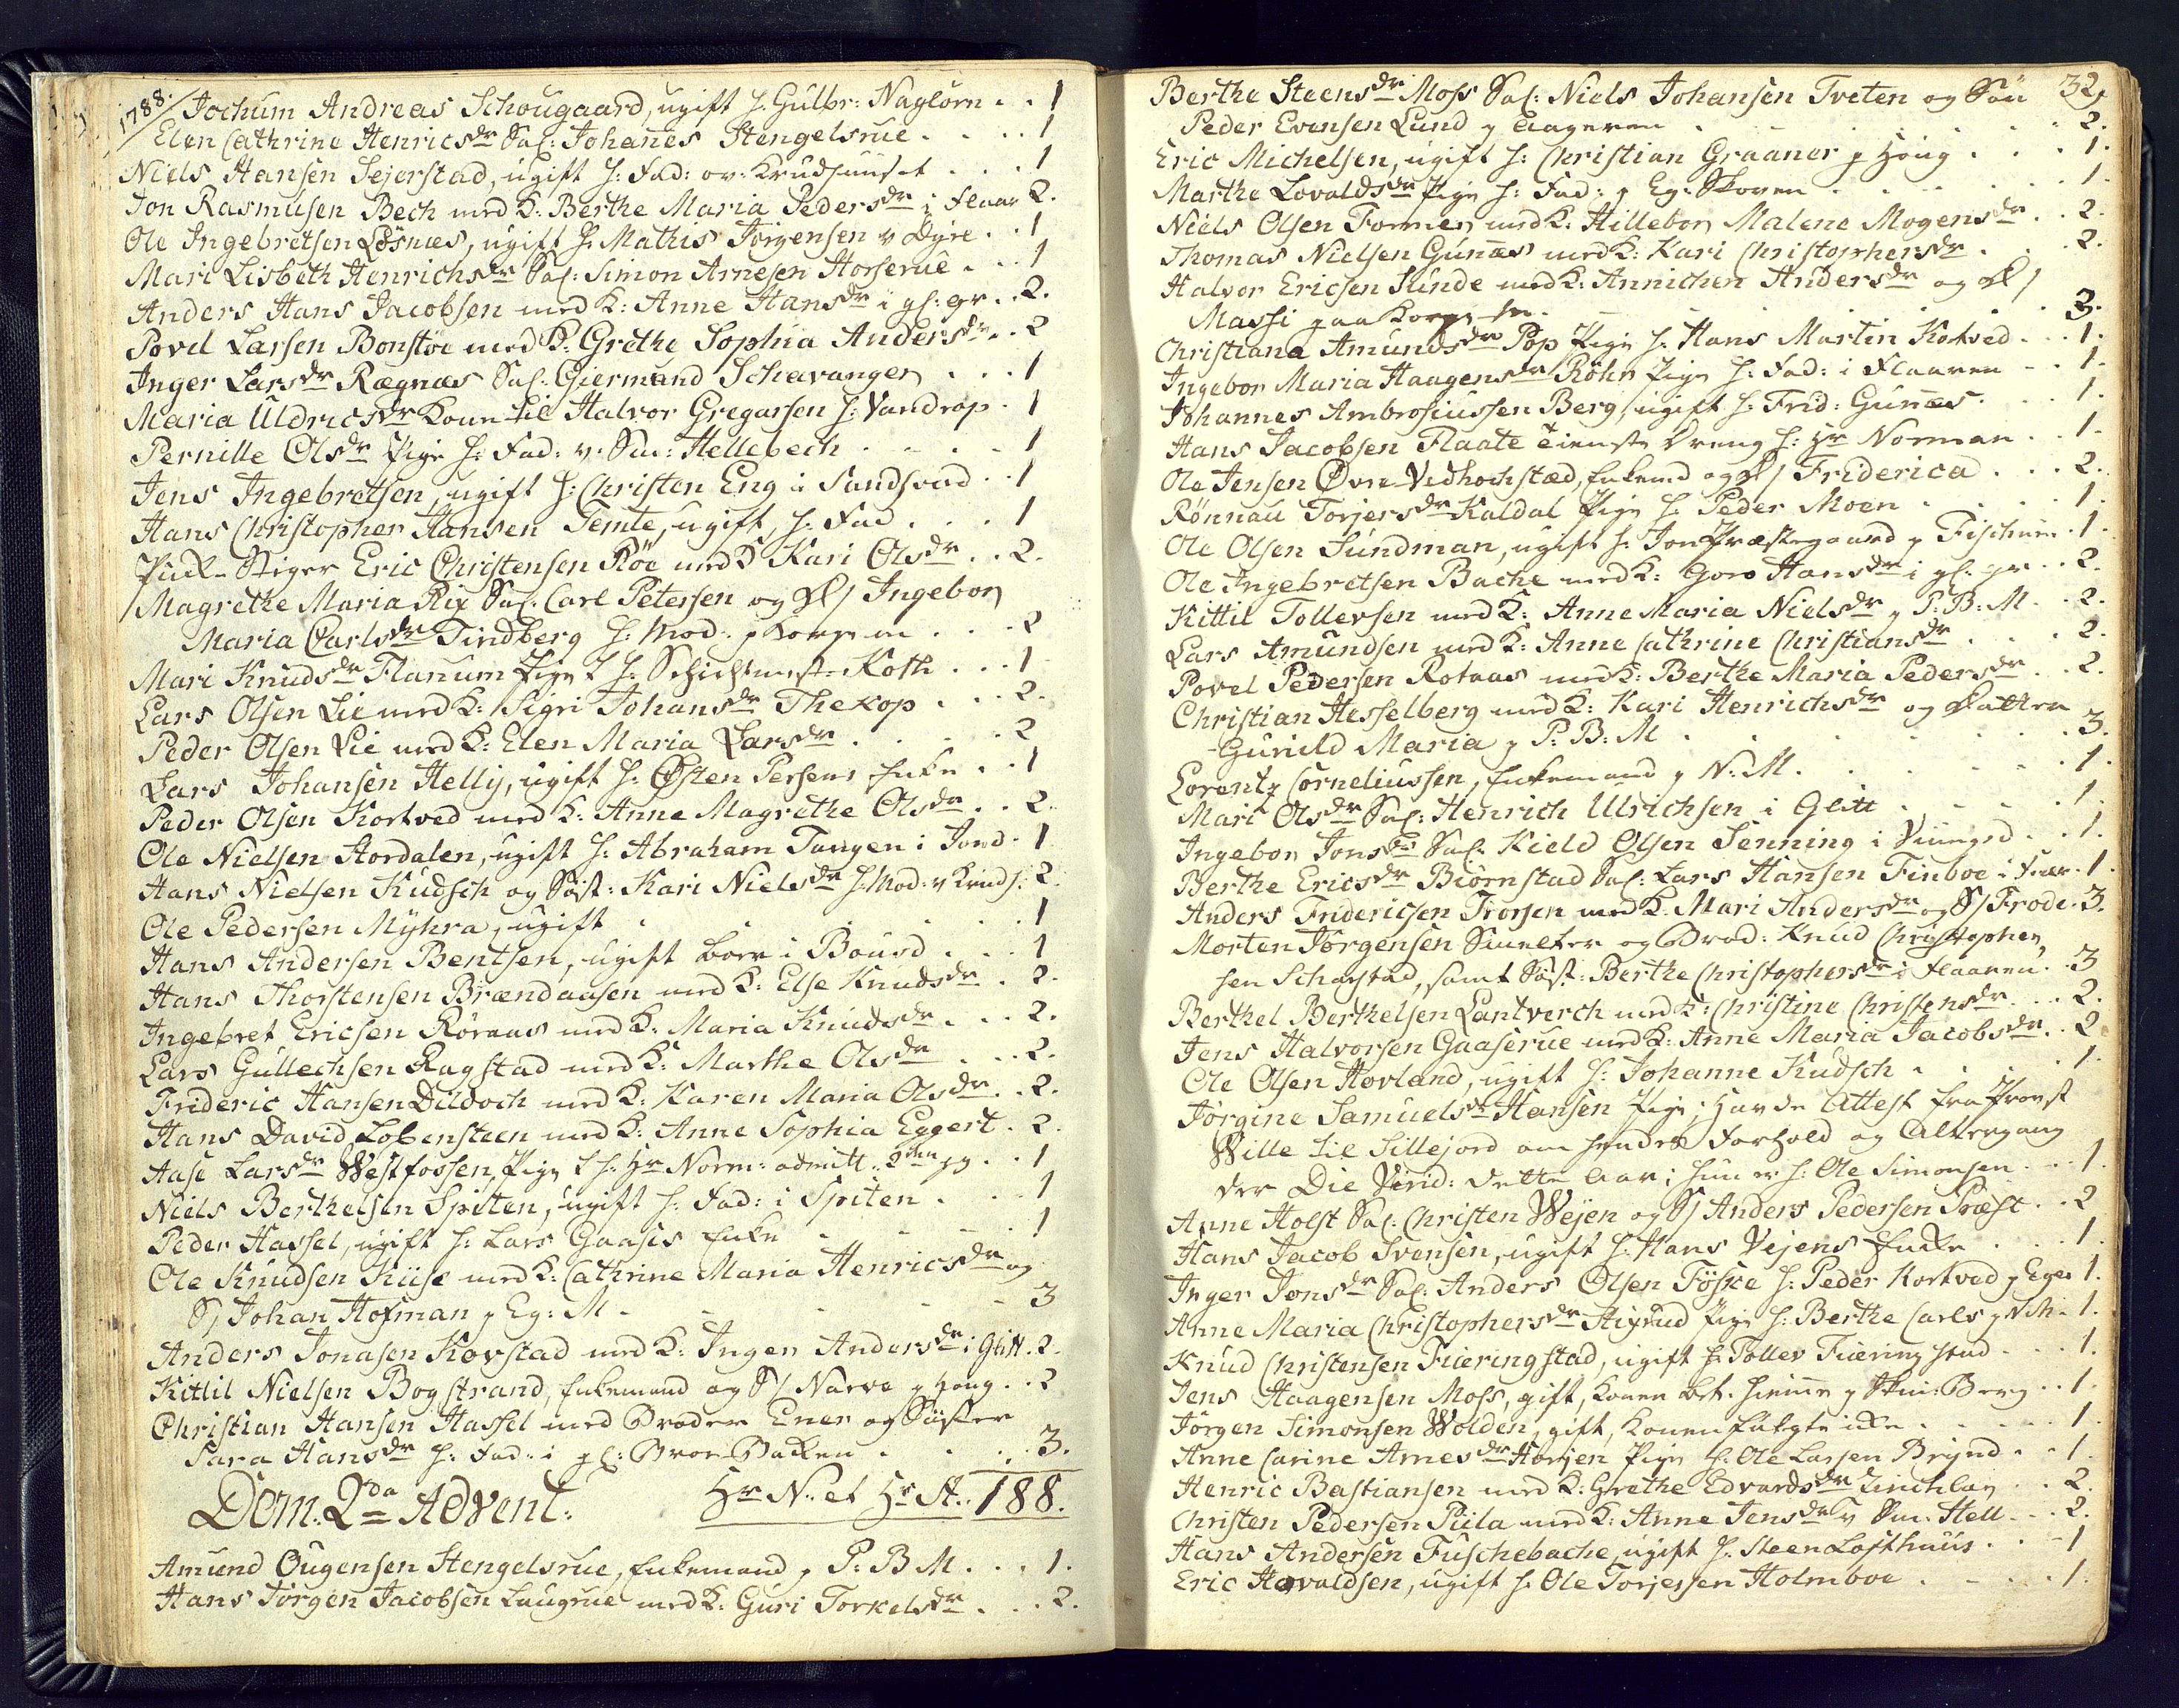 1788.
Jochum Andreas Schougaard, ugift h. Gulbr: Naglorn . . 1
Elen Cathrine Henricsdr Sal: Johanes Stengelsrue . . . . 1
Niels Hansen Sejerstad, ugift h: Fad: ov: Krudhuuset . . . 1
Jon Rasmusen Bech med K: Berthe Maria Pedersdr i Flaar 2.
Ole Ingebretsen Løsnæs, ugift h. Mathis Jørgensen v Dyre . . 1
Mari Lisbeth Henrichsdr Sal: Simon Arnesen Horserue . . . 1
Anders Hans Jacobsen med K: Anne Hansdr i gl: gr . . 2.
Povel Larsen Bonstøe med K: Grethe Sophia Andersdr . . 2
Inger Larsdr Rægnæs Sal: Giermand Schavanger . . . 1
Maria Uldricsdr Kone til Halvor Gregarsen h: Vandrop . 1
Pernille Olsdr Pige h: Fad: v. Sm: Hellebech . . . . 1
Jens Ingebretsen, ugift h: Christen Eng i Sandsvad . . 1
Hans Christopher Hansen Temte, ugift, h. Fad . . . 1
Puck-Stiger Eric Christensen Røe med K Kari Olsdr . . 2.
Magrethe Maria Rix Sal: Carl Petersen og D/ Ingebor
Maria Carlsdr Tindberg h: Mod: p Korpem . . . 2
Mari Knudsdr Flanum Pige h Schichtmest. Koth . . . 1
Lars Olsen Lie med K: Sigri Johansdr Thexop . . 2.
Peder Olsen Lie med K: Elen Maria Larsdr . . . 2
Lars Johansen Helly, ugift h: Østen Persens Enke . . 1
Peder Olsen Kortved med K: Anne Magrethe Olsdr . . 2.
Ole Nielsen Hordalen, ugift h. Abraham Tangen i Jond. 1
Hans Nielsen Kudsch og Søst: Kari Nielsdr h: Mod: v Krudh: 2.
Ole Pedersen Myhra, ugift . . . . . 1
Hans Andersen Bentsen, ugift boer i Bousd . . . 1
Hans Thorstensen Brændaasen med K: Else Knudsdr . 2.
Ingebret Ericsen Røraas med K: Maria Knudsdr . . . 2.
Lars Gullechsen Ragstad med K: Marthe Olsdr . . . 2.
Frideric Hansen Dildoch med K: Karen Maria Olsdr . . 2.
Hans David Lobensteen med K: Anne Sophia Eggert . 2.
Aase Larsdr Westfossen, Pige h: Hr Norm: admitt. 2den gg . . 1
Niels Berthelsen Spiten, ugift h. Fad: i Spiten . . . 1
Peder Hassel, ugift h: Lars Gaases Enke . . . . 1
Ole Knudsen Kiise med K: Cathrine Maria Henricsdr og
S/ Johan Hofman p Eg: M . . . . 3
Anders Jonasen Korstad med K: Inger Andersdr i Glitt. 2.
Kittil Nielsen Bogstrand, Enkemand og S/ Narve p Houg . . 2
Christian Hansen Hassel med Broder Ener og Søster
Sara Hansdr h: Fad: i gl: Broe-Bakken . . . . 3.
Dom: 2da Advent: Hr N: et Hr St: 188.
Amund Ougensen Stengelsrue, Enkemand p P: B M . . . 1.
Hans Jørgen Jacobsen Laugrue med K: Guri Torkelsdr . . . 2.
32.
Berthe Steensdr Moss Sal: Niels Johansen Tveten og Søn
Peder Evensen Lund p Aageren . . . . . . 2.
Eric Michelsen, ugift h: Christian Graaner p Houg . . . 1.
Marthe Lovaldsdr Pige h: Fad: p Eg: Skoven . . . . 1.
Niels Olsen Former med K: Hillebor Malene Mogensdr . . 2.
Thomas Nielsen Gunæs med K: Kari Christophersdr . . . 2.
Halvor Ericsen Lunde med K: Annichen Andersdr og D/
Massi paa Korpem . . . . . . 3.
Christiana Amundsdr Pop Pige h. Hans Martin Kotved . . . 1.
Ingebor Maria Haagensdr Røhr Pige h: Fad: i Flaaren . . 1.
Johannes Ambrosiussen Berg, ugift h. Frid: Gunæs . . . 1.
Hans Jacobsen Flaate tieneste dreng h: Hr Norman . . 1.
Ole Jensen Øvre-Vedhochstæd, Enkemd og D/ Friderica . . . 2.
Rønnau Torjersdr Kaldal Pige h Peder Moen . . . . 1.
Ole Olsen Sundman, ugift h: Jon Præstegaard p Fischum . 1.
Ole Ingebretsen Bache med K: Goro Hansdr i gl: gr . . 2.
Kittil Tollefsen med K: Anne Maria Nielsdr p P: B: M . . 2.
Lars Amundsen med K: Anne Cathrine Christiansdr . . . 2.
Povel Pedersen Rotnas med K: Berthe Maria Pedersdr . . 2.
Christian Hesselberg med K: Kari Henrichsdr og Datter
Gunild Maria p P: B: M . . . . . . 3.
Lorentz Corneliussen, Enkemand p N: M . . . . . 1.
Mari Olsdr Sal: Henrich Ulrichsen i Glitt . . . . 1.
Ingebor Jonsdr Sal. Kield Olsen Senning i Viinged . . . 1.
Berthe Ericsdr Biørnstad Sal: Lars Hansen Finboe i Fuær . 1.
Anders Fridericsen Trorsen med K. Mari Andersdr og S/ Frode . 3.
Morten Jørgensen Smelter og Brod: Knud Christopher
sen Scharstad, samt Søst: Berthe Christophersdr i Flaaren . . 3
Berthel Berthelsen Lantverch med K: Christine Christensdr . . . 2.
Jens Halvorsen Gaaserue med K: Anne Maria Jacobsdr . . 2.
Ole Olsen Hovland, ugift h: Johanne Kudsch . . . . 1.
Jørgine Samuelsdr Hansen Pige; havde Attest fra Provst
Wille til Sillejord om hendes Forhold og Altergang
der Die Virid: dette Aar; hun er h: Ole Simonsen . . . 1.
Anne Holst Sal: Christen Wejen og S/ Anders Pedersen Præst . . 2
Hans Jacob Svensen, ugift h: Hans Vejens Encke . . . 1.
Inger Jonsdr Sal: Anders Olsen Føske h: Peder Kortved p Eger 1.
Anne Maria Christophersdr Stigrud Pige h: Berthe Carls p N M . 1.
Knud Christensen Fiæringstad, ugift h: Tollev Fiæring stad . . . 1.
Jens Haagensen Moss, gift, Konen bet. hiemme p Skui: Berg . . 1.
Jørgen Simonsen Wolden, gift, Konen fulgte icke . . . . 1.
Anne Carine Arnesdr Horjen Pige h: Ole Larsen Brynd . . . 1.
Henric Bastiansen med K: Grethe Edvardsdr Zinchlar . . 2.
Christen Pedersen Piila med K: Anne Jensdr v Sm: Hell . . . 2.
Hans Andersen Fuschebache, ugift h. Steen Lofthuus . . . 1
Eric Havaldsen, ugift h: Ole Torjessen Holmboe . . . . 1.